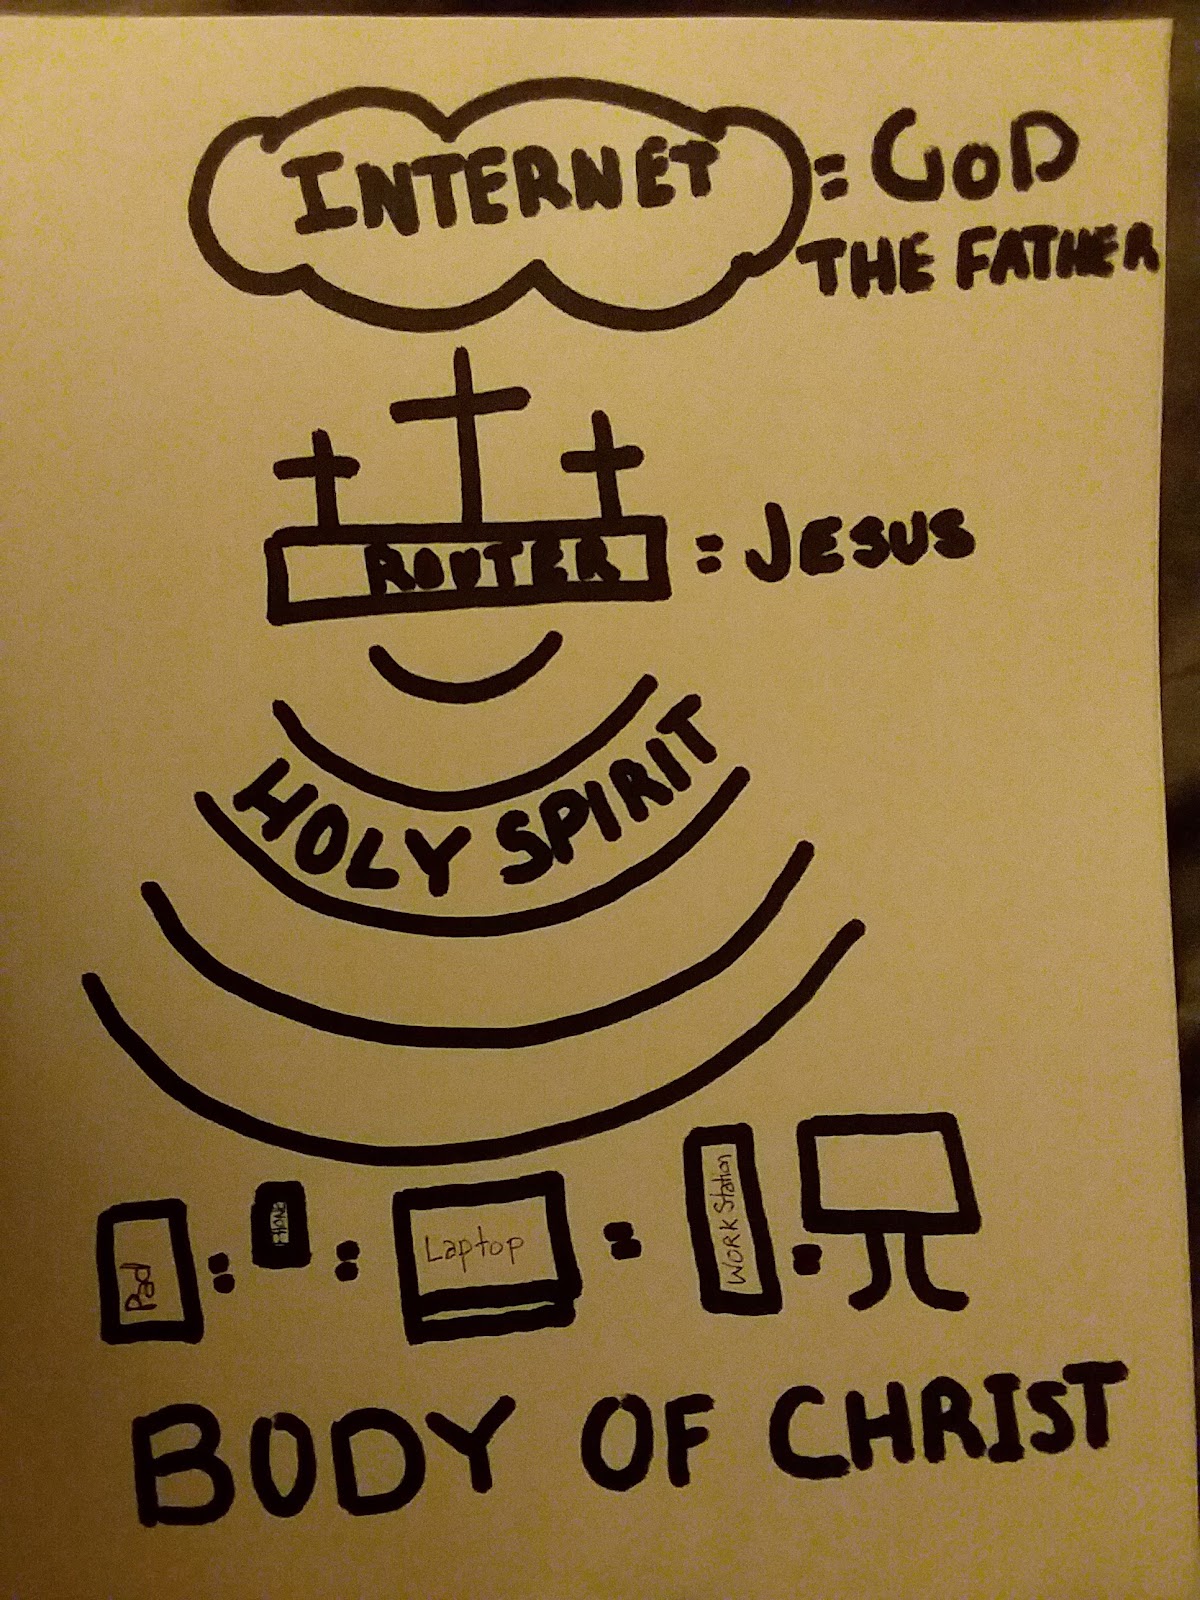 INTERNET = GOD
THE FATHER
ROUTER = JESUS
HOLY SPIRIT
Pad = PHONE = Laptop = WORKStation =
BODY OF CHRIST